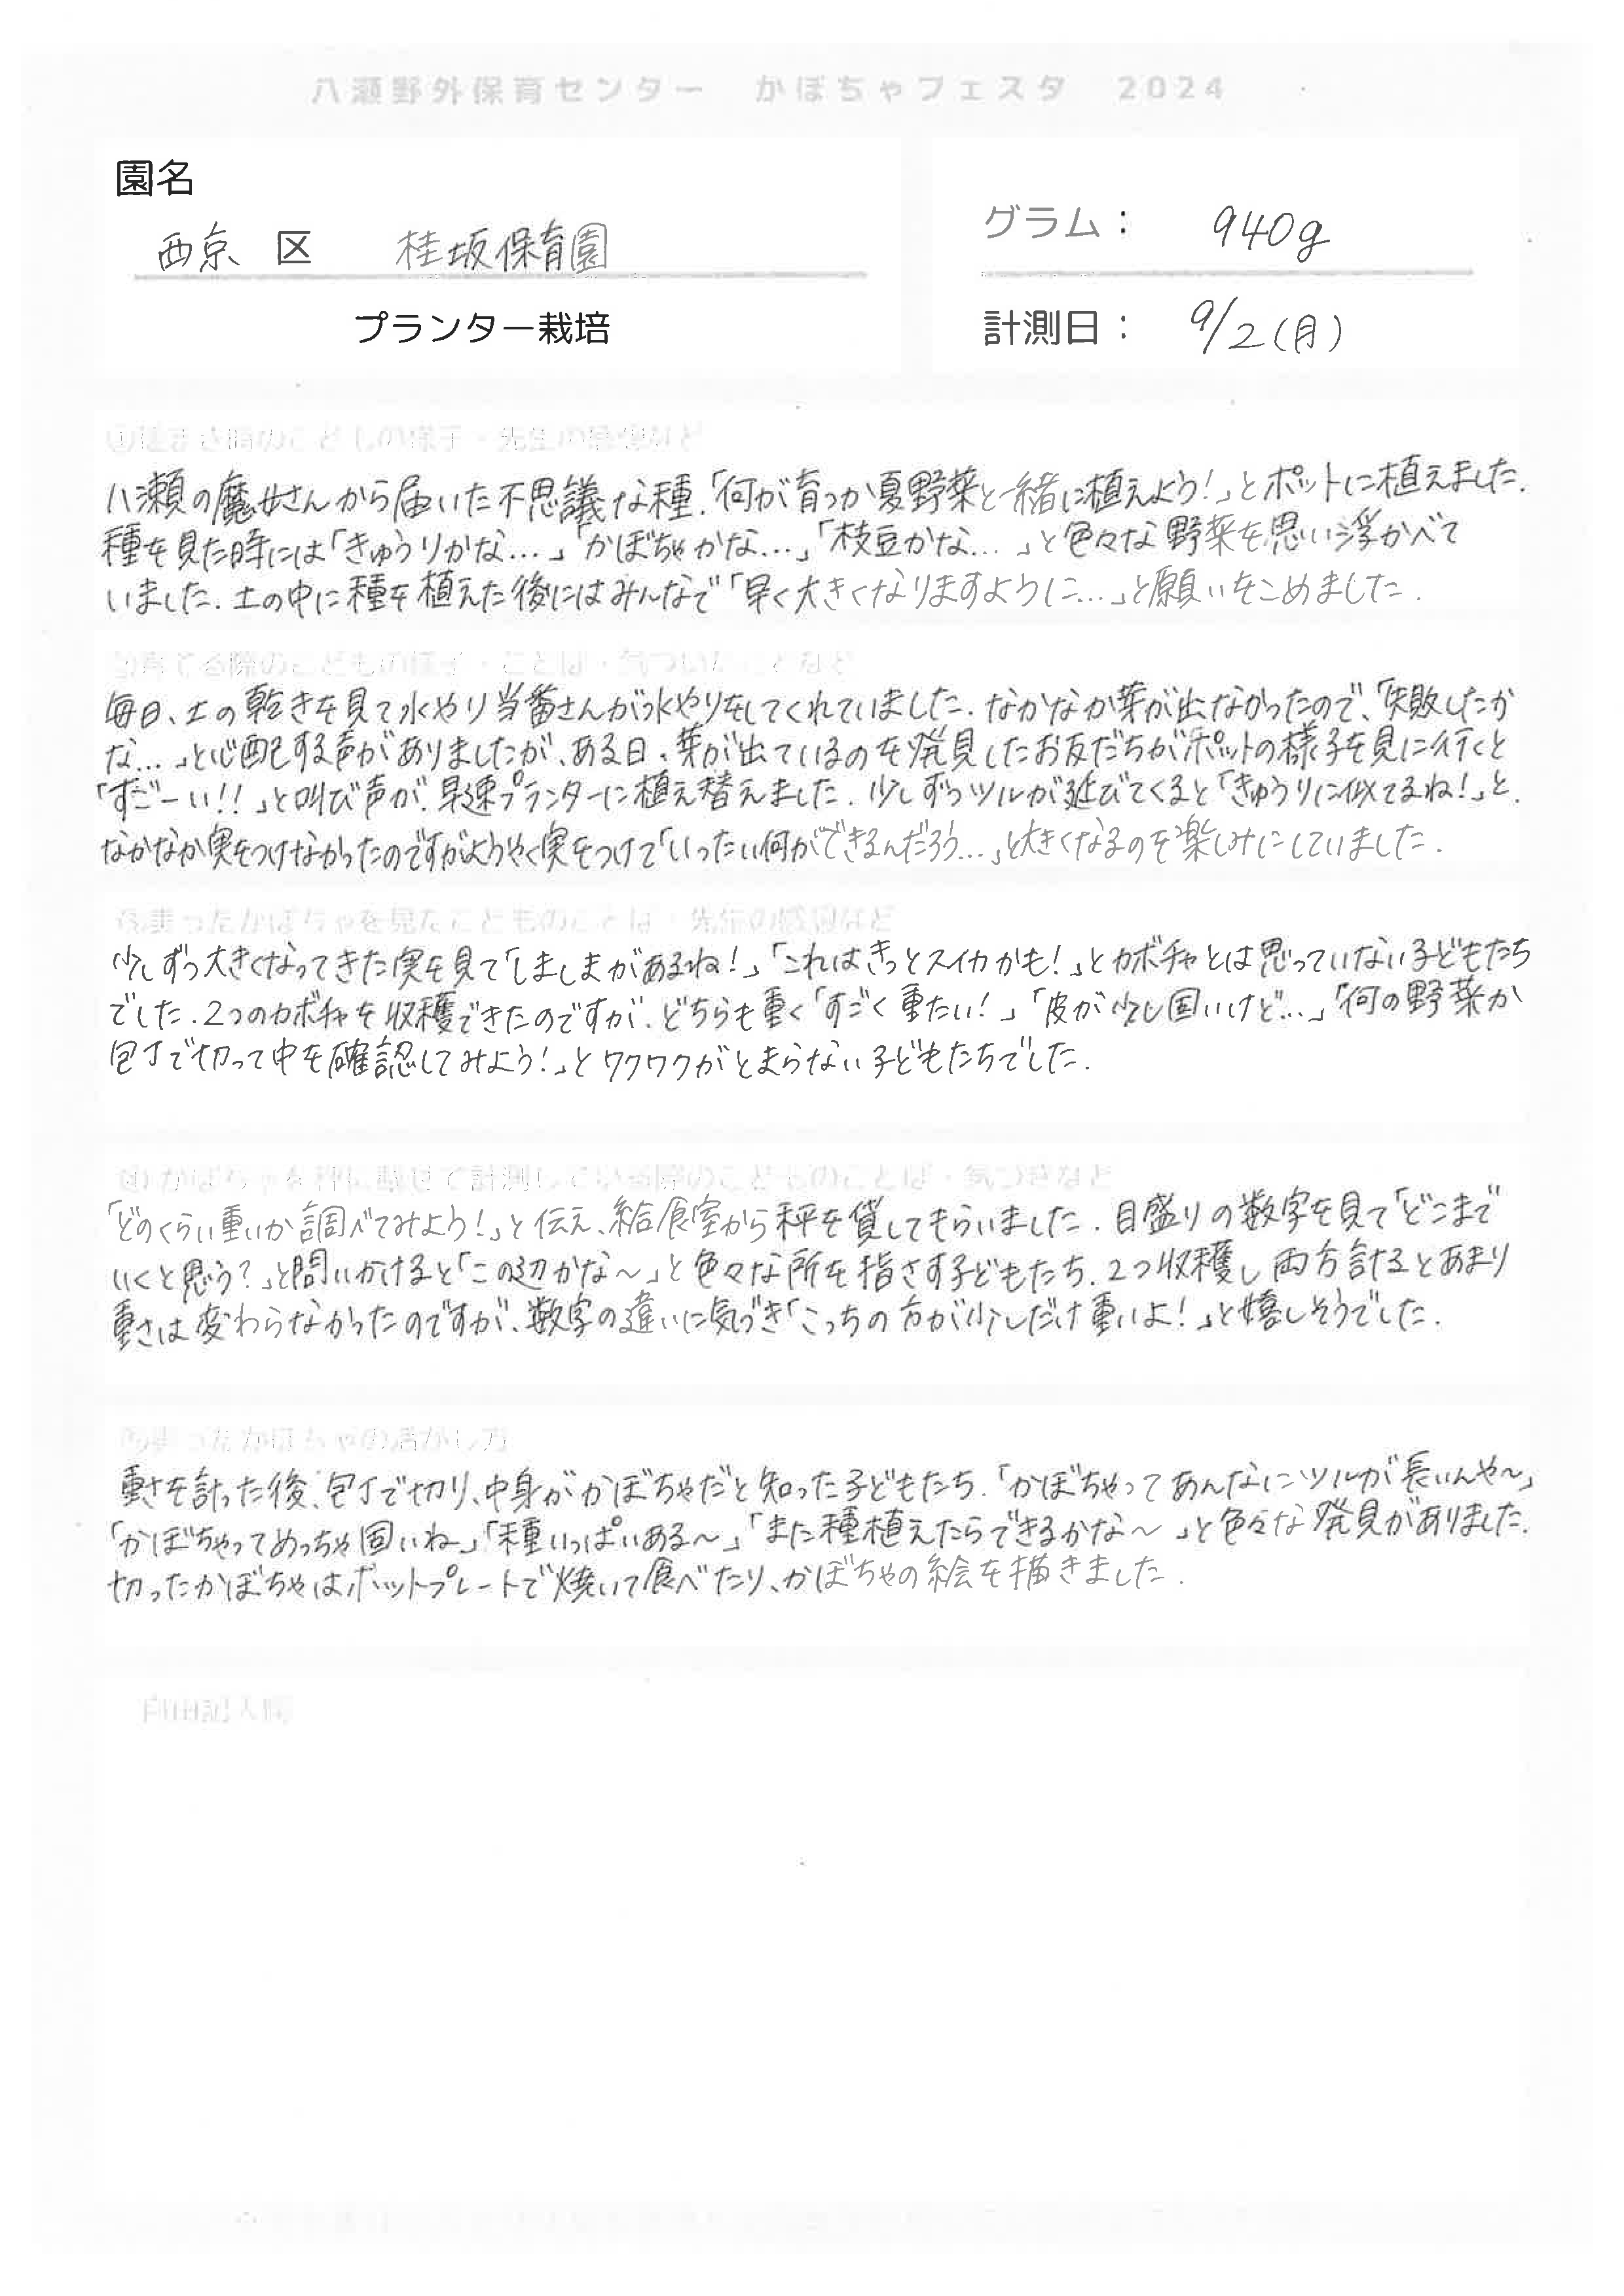 八瀬野外保育センター　かぼちゃフェスタ　2024
園名
西京 区　桂坂保育園
グラム：　940g
プランター栽培
計測日：　9/2(月)
八瀬の魔女さんから届いた不思議な種.「何が育つか夏野菜と一緒に植えよう!」とポットに植えました.
種を見た時には「きゅうりかな…」「かぼちゃかな…」「枝豆かな…」と色々な野菜を思い浮かべて
いました.土の中に種を植えた後にはみんなで「早く大きくなりますように…」と願いをこめました.
毎日、土の乾きを見て水やり当番さんが水やりをしてくれていました.なかなか芽が出なかったので、「失敗したか
な…」と心配する声がありましたが、ある日、芽が出ているのを発見したお友だちがポットの様子を見に行くと
「すごーい!!」と叫び声が.早速プランターに植え替えました.少しずつツルが延びてくると「きゅうりに似てるね!」と.
なかなか実をつけなかったのですがようやく実をつけて「いったい何ができるんだろう…」と大きくなるのを楽しみにしていました.
少しずつ大きくなってきた実を見て「しましまがあるね!」「これはきっとスイカかも!」とカボチャとは思っていない子どもたち
でした.2つのカボチャを収穫できたのですが、どちらも重く「すごく重たい!」「皮が少し固いけど…」「何の野菜か
包丁で切って中を確認してみよう!」とワクワクがとまらない子どもたちでした.
「どのくらい重いか調べてみよう!」と伝え、給食室から秤を貸してもらいました.目盛りの数字を見て「どこまで
いくと思う?」と問いかけると「この辺かな～」と色々な所を指さす子どもたち.2つ収穫し両方計るとあまり
重さは変わらなかったのですが、数字の違いに気づき「こっちの方が少しだけ重いよ!」と嬉しそうでした.
重さを計った後、包丁で切り、中身がかぼちゃだと知った子どもたち.「かぼちゃってあんなにツルが長いんや～」
「かぼちゃってめっちゃ固いね」「種いっぱいある～」「また種植えたらできるかな～」と色々な発見がありました.
切ったかぼちゃはホットプレートで焼いて食べたり、かぼちゃの絵を描きました.